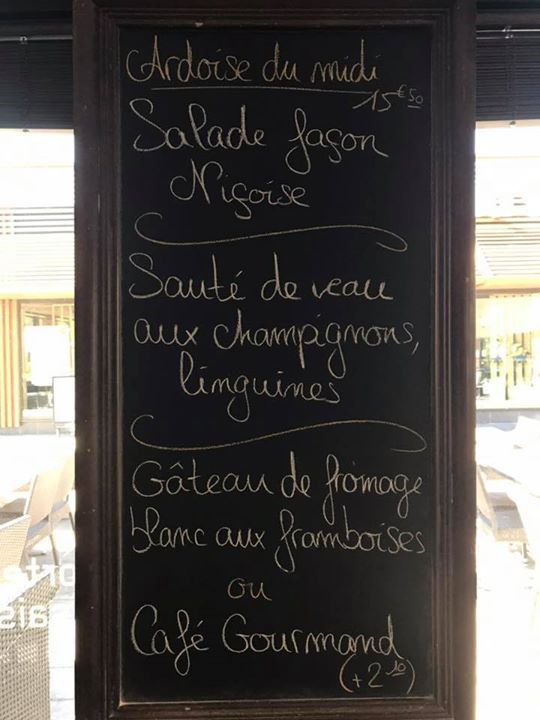 Ardoise du midi
15€50
Salade façon
Niçoise
Sauté de veau
aux champignons,
linguines
Gâteau de fromage
blanc aux framboises
ou
Café Gourmand
(+2 10)